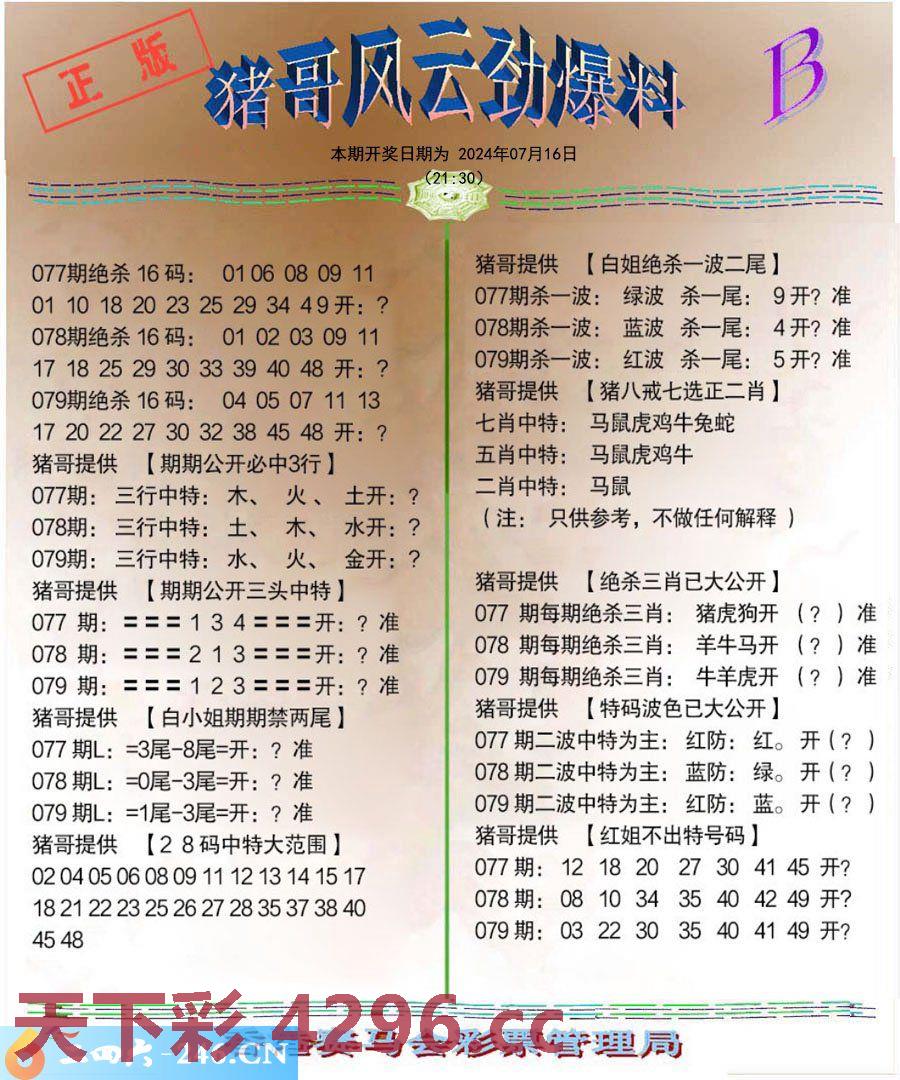 正版
猪哥风云劲爆料
B
本期开奖日期为 2024年07月16日
（21:30）
077期绝杀 16 码： 01 06 08 09 11
01 10 18 20 23 25 29 34 49 开：?
078期绝杀 16 码： 01 02 03 09 11
17 18 25 29 30 33 39 40 48 开：?
079期绝杀 16 码： 04 05 07 11 13
17 20 22 27 30 32 38 45 48 开：?
猪哥提供 【期期公开必中3行】
077期： 三行中特： 木、 火、 土开：?
078期： 三行中特： 土、 木、 水开：?
079期： 三行中特： 水、 火、 金开：?
猪哥提供 【期期公开三头中特】
077 期：===1 3 4===开：? 准
078 期：===2 1 3===开：? 准
079 期：===1 2 3===开：? 准
猪哥提供 【白小姐期期禁两尾】
077 期L：=3尾-8尾=开：? 准
078 期L：=0尾-3尾=开：? 准
079 期L：=1尾-3尾=开：? 准
猪哥提供 【2 8 码中特大范围】
02 04 05 06 08 09 11 12 13 14 15 17
18 21 22 23 25 26 27 28 35 37 38 40
45 48
猪哥提供 【白姐绝杀一波二尾】
077期杀一波： 绿波 杀一尾： 9 开? 准
078期杀一波： 蓝波 杀一尾： 4 开? 准
079期杀一波： 红波 杀一尾： 5 开? 准
猪哥提供 【猪八戒七选正二肖】
七肖中特： 马鼠虎鸡牛兔蛇
五肖中特： 马鼠虎鸡牛
二肖中特： 马鼠
（注： 只供参考，不做任何解释 ）
猪哥提供 【绝杀三肖已大公开】
077 期每期绝杀三肖： 猪虎狗开 （? ）准
078 期每期绝杀三肖： 羊牛马开 （? ）准
079 期每期绝杀三肖： 牛羊虎开 （? ）准
猪哥提供 【特码波色已大公开】
077 期二波中特为主：红防：红。开（? ）
078 期二波中特为主：蓝防：绿。开（? ）
079 期二波中特为主：红防：蓝。开（? ）
猪哥提供 【红姐不出特号码】
077 期： 12 18 20 27 30 41 45 开?
078 期： 08 10 34 35 40 42 49 开?
079 期： 03 22 30 35 40 41 49 开?
天下彩 4296.cc
二四六-246.CN
马会彩票管理局